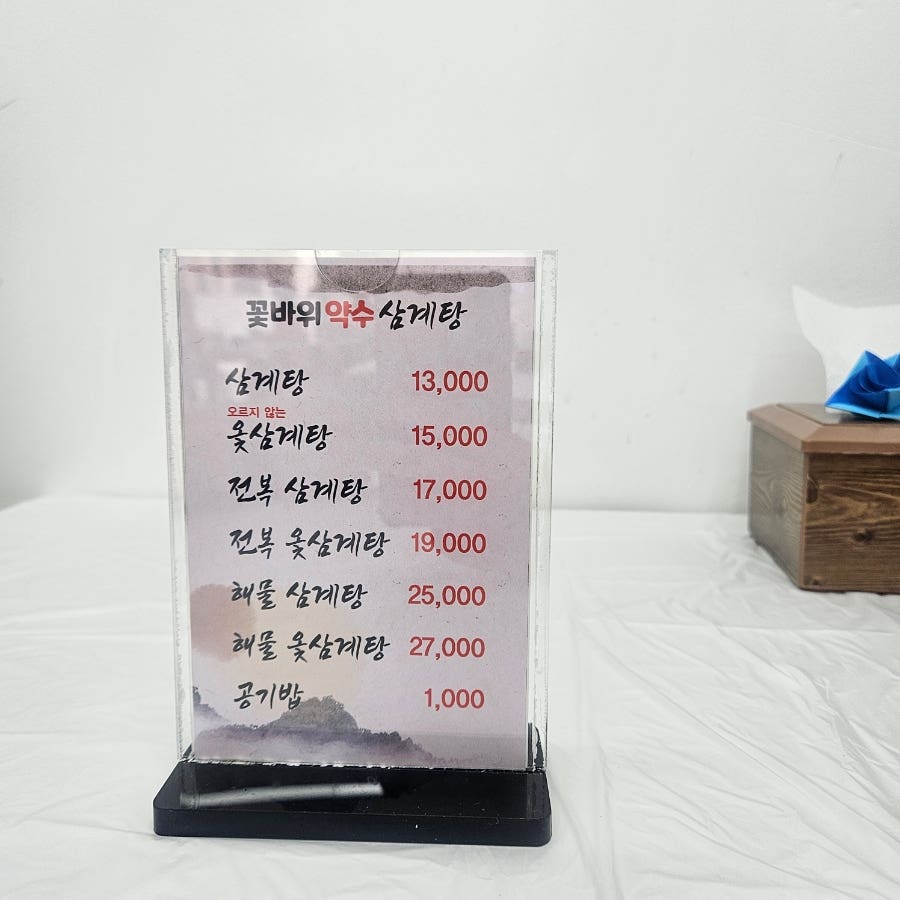 꽃바위 약수 삼계탕
삼계탕 13,000
오르지 않는
옻삼계탕 15,000
전복 삼계탕 17,000
전복 옻삼계탕 19,000
해물 삼계탕 25,000
해물 옻삼계탕 27,000
공기밥 1,000